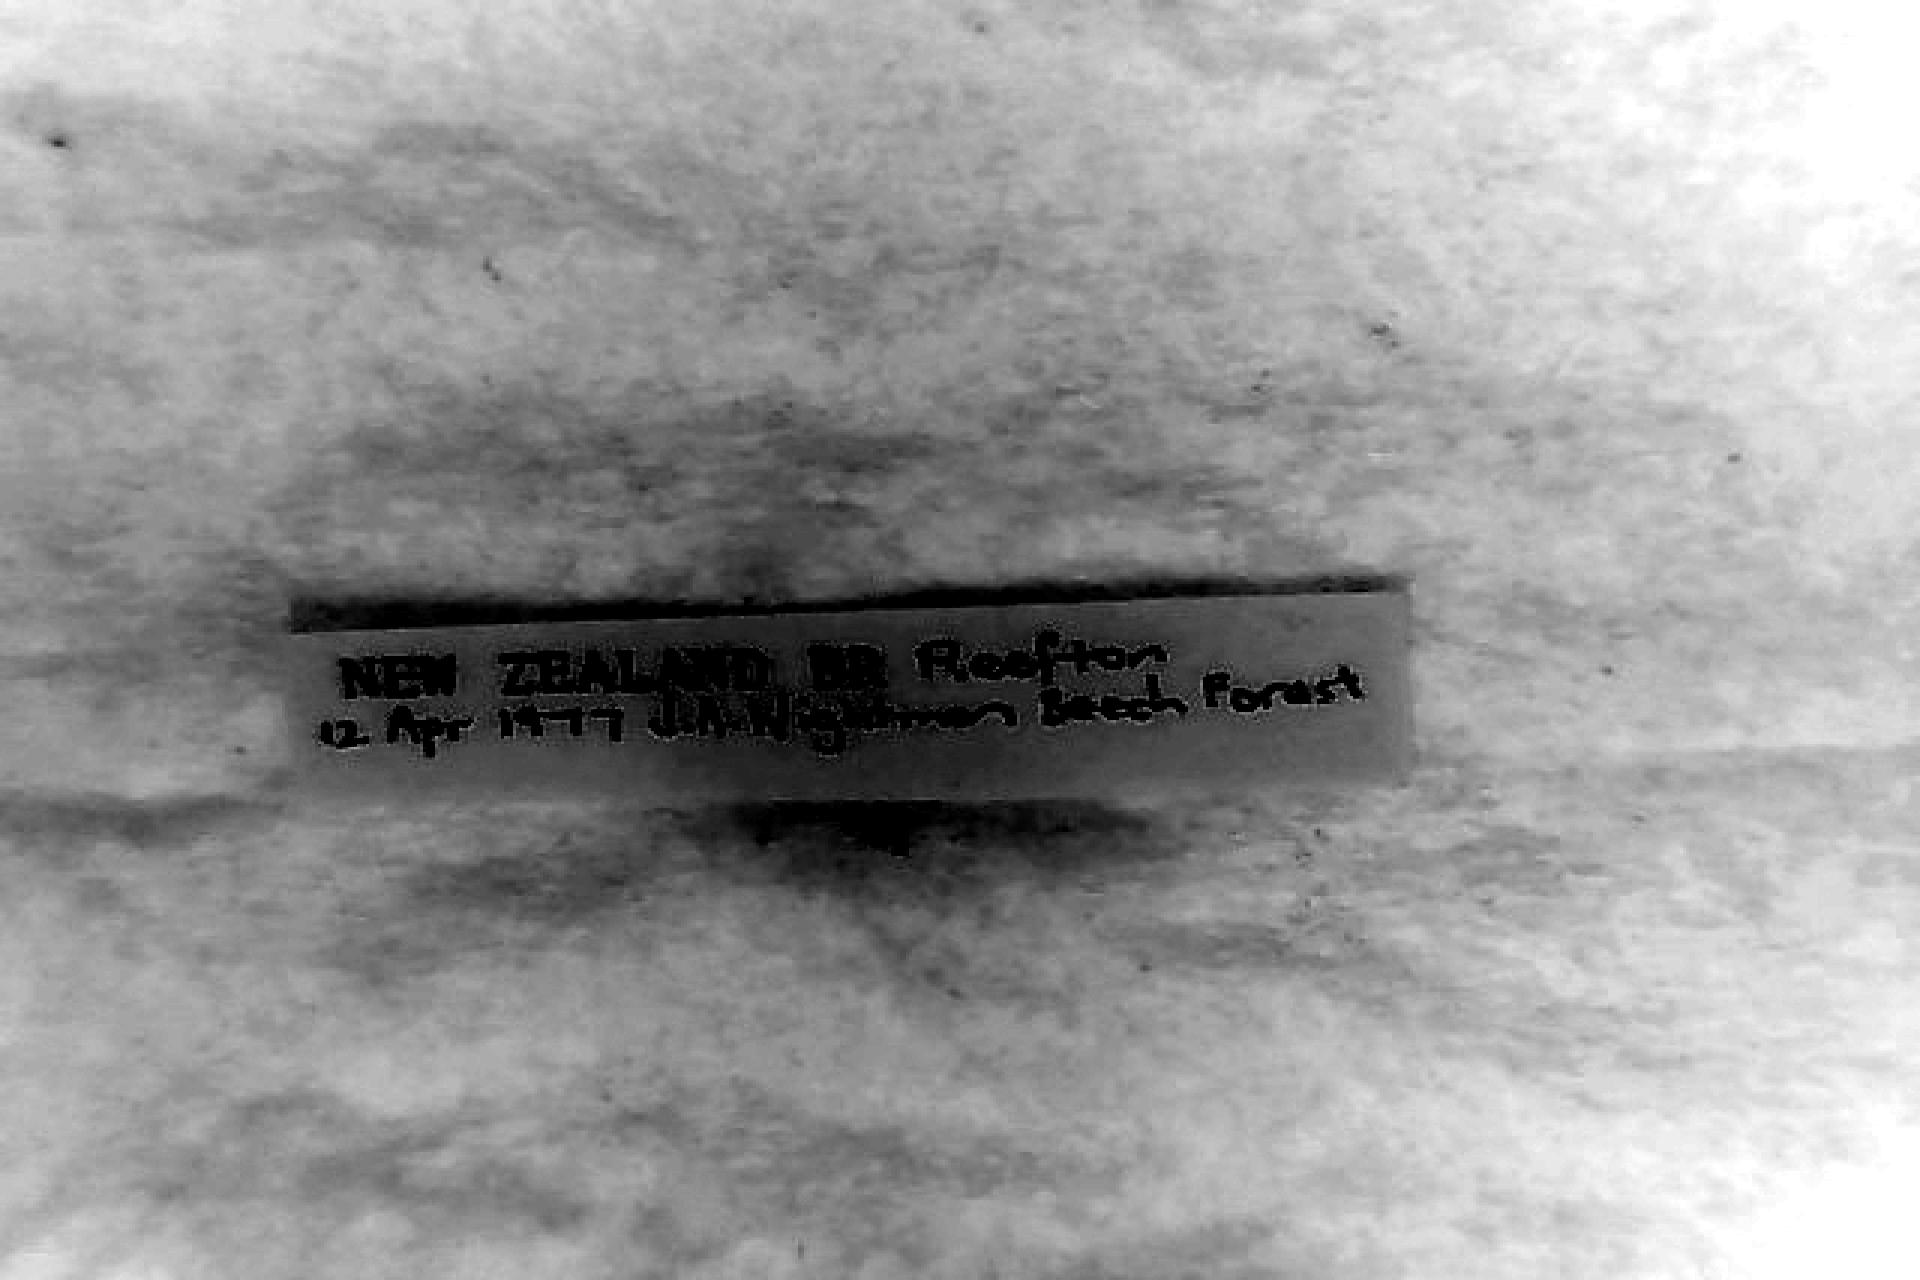 NEW ZEALAND BR Reefton
12 Apr 1977 J.A. Nightman Beech Forest